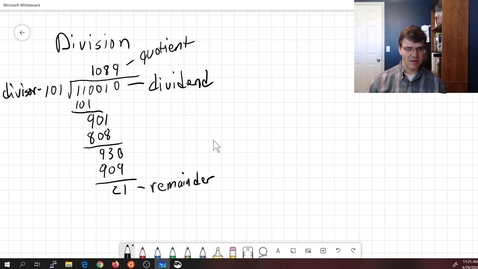 Microsoft Whiteboard
Division
quotient
1089
divisor - 101 110010 - dividend
101
901
808
930
909
21 - remainder
11:25 AM